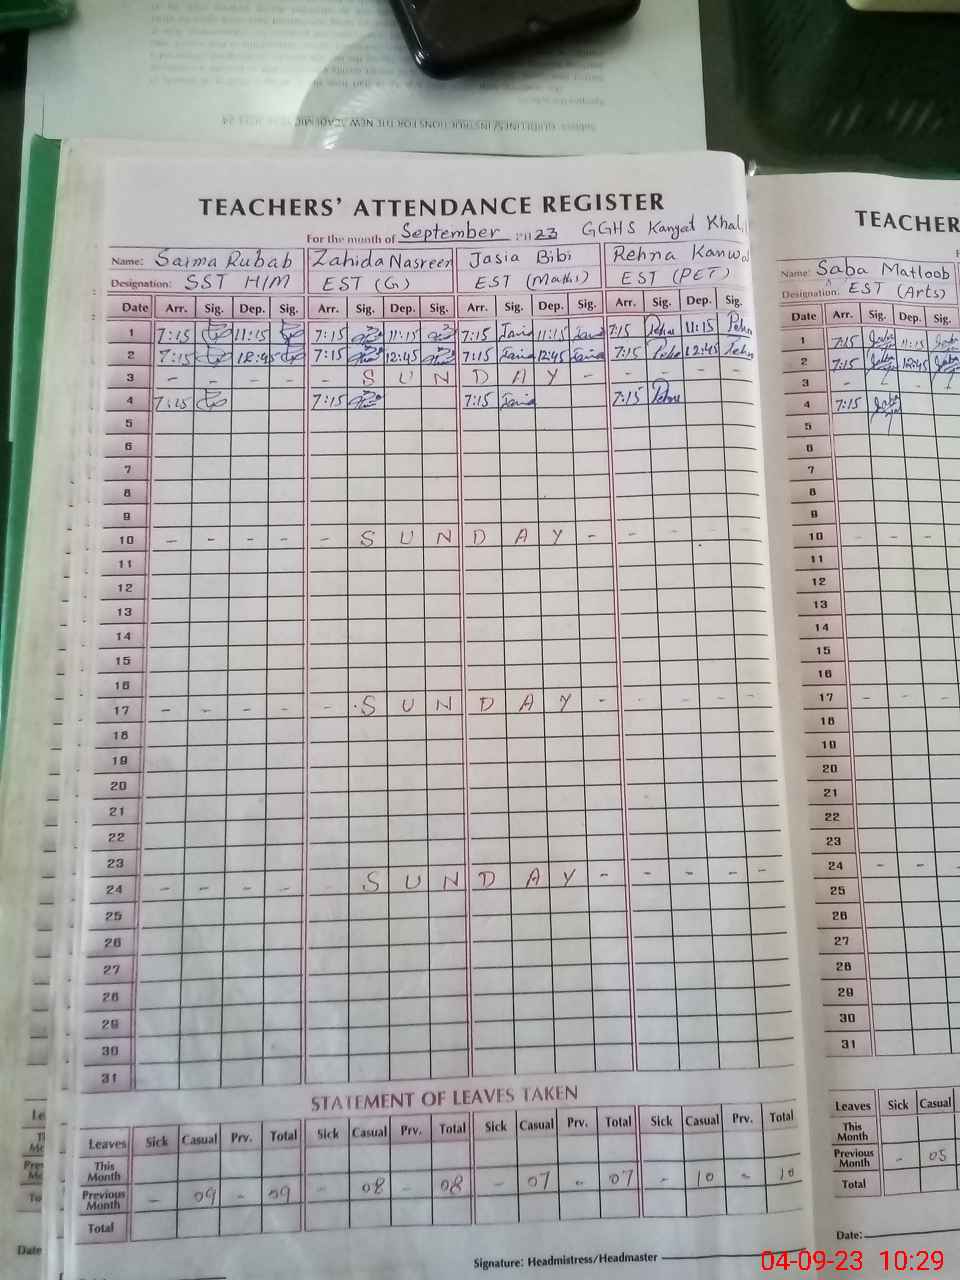 Subject: GUIDELINES/ INSTRUCTIONS FOR THE NEW ACADEMIC
TEACHERS' ATTENDANCE REGISTER
For the month of September 2023 GGHS Kanyat Khalil
Name: Saima Rubab Zahida Nasreen Jasia Bibi Rehna Kanwal
Designation: SST H/M EST (G) EST (Maths) EST (PET)
Date Arr. Sig. Dep. Sig. Arr. Sig. Dep. Sig. Arr. Sig. Dep. Sig. Arr. Sig. Dep. Sig.
1 7:15 11:15 7:15 11:15 7:15 11:15 7:15 11:15
2 7:15 12:45 7:15 12:45 7:15 12:45 7:15 12:45
3 - - - - - S U N D A Y - - - - -
4 7:15 7:15 7:15 7:15
5
6
7
8
9
10 - - - - - S U N D A Y - - - - -
11
12
13
14
15
16
17 - - - - - S U N D A Y - - - - -
18
19
20
21
22
23
24 - - - - - S U N D A Y - - - - -
25
26
27
28
29
30
31
STATEMENT OF LEAVES TAKEN
Leaves Sick Casual Prv. Total Sick Casual Prv. Total Sick Casual Prv. Total Sick Casual Prv. Total
This Month
Previous Month - 09 - 09 - 08 - 08 - 07 - 07 - 10 - 10
Total
Signature: Headmistress/Headmaster
TEACHER
Name: Saba Matloob
Designation: EST (Arts)
Date Arr. Sig. Dep. Sig.
1 7:15 11:15
2 7:15 12:45
3 - -
4 7:15
5
6
7
8
9
10 - - - -
11
12
13
14
15
16
17 - - - -
18
19
20
21
22
23
24 - - -
25
26
27
28
29
30
31
Leaves Sick Casual
This Month
Previous Month - 05
Total
Date:
Date
04-09-23 10:29